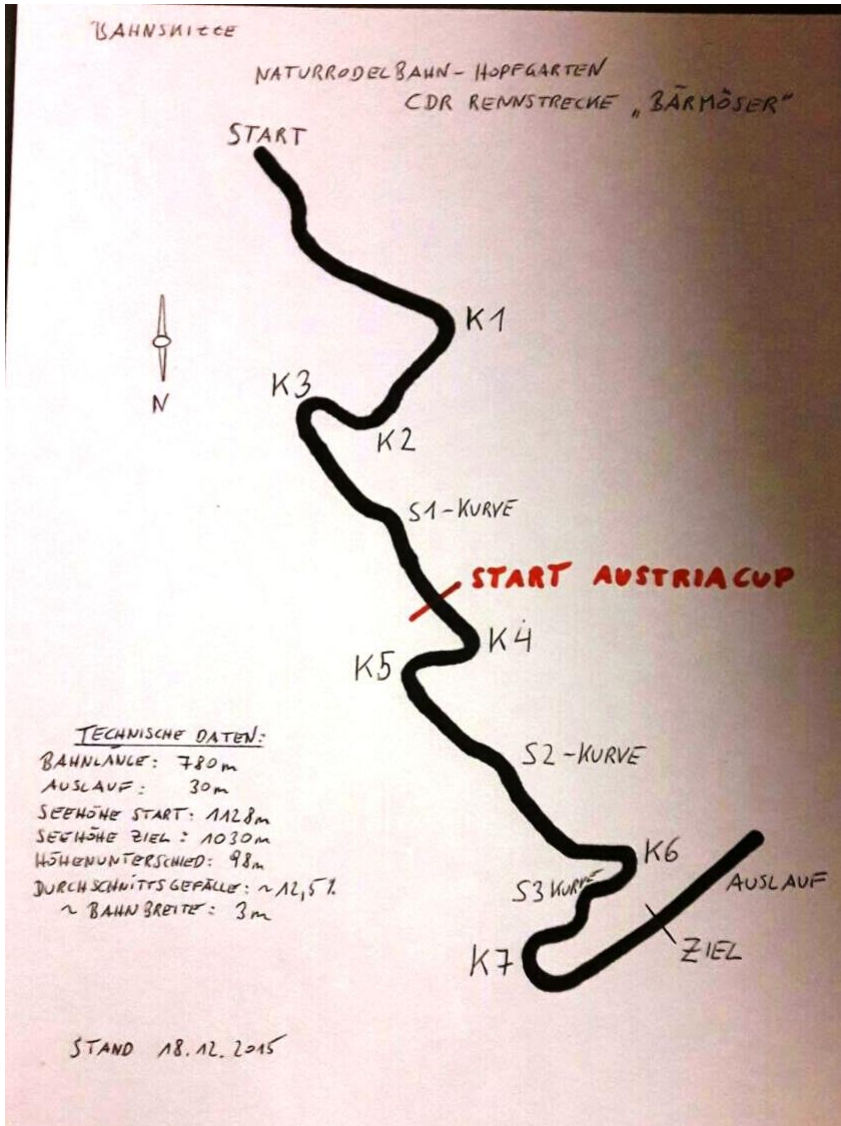 BAHNSKIZZE
NATURRODELBAHN - HOPFGARTEN
CDR RENNSTRECKE „BÄRMÖSER“
START
K1
N
K3
K2
S1-KURVE
START AUSTRIACUP
K4
K5
S2-KURVE
TECHNISCHE DATEN:
BAHNLÄNGE: 780m
AUSLAUF: 30m
SEEHÖHE START: 1128m
SEEHÖHE ZIEL: 1030m
HÖHENUNTERSCHIED: 98m
DURCHSCHNITTSGEFÄLLE: ~12,5%
~ BAHNBREITE: 3m
K6
S3 KURVE
AUSLAUF
ZIEL
K7
STAND 18.12.2015